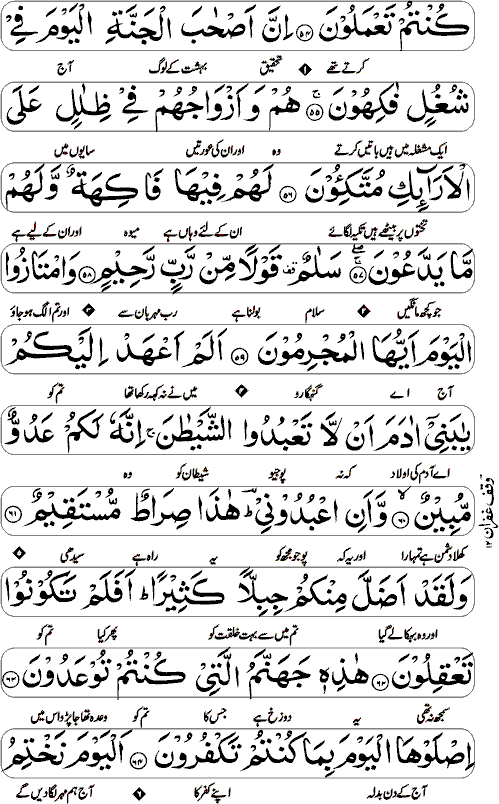 كُنْتُمْ تَعْمَلُوْنَ ﴿۵۴﴾ اِنَّ اَصْحٰبَ الْجَنَّةِ الْيَوْمَ فِيْ
کرتے تھے ۱ تحقیق بہشت کے لوگ آج
شُغُلٍ فٰكِهُوْنَ ﴿۵۵﴾ هُمْ وَ اَزْوَاجُهُمْ فِيْ ظِلٰلٍ عَلَى
ایک مشغلہ میں ہیں باتیں کرتے وہ اور ان کی عورتیں سایوں میں
الْاَرَآئِكِ مُتَّكِئُوْنَ ﴿۵۶﴾ لَهُمْ فِيْهَا فَاكِهَةٌ وَّلَهُمْ
تختوں پر بیٹھے ہیں تکیہ لگائے ان کے لئے وہاں ہے میوہ اور ان کے لیے ہے
مَّا يَدَّعُوْنَ ﴿۵۷﴾ سَلٰمٌ قَوْلًا مِّنْ رَّبٍّ رَّحِيْمٍ ﴿۵۸﴾ وَامْتَازُوا
جو کچھ مانگیں ۲ سلام بولنا ہے رب مہربان سے ۲ اور تم الگ ہو جاؤ
الْيَوْمَ اَيُّهَا الْمُجْرِمُوْنَ ﴿۵۹﴾ اَلَمْ اَعْهَدْ اِلَيْكُمْ
آج اے گنہگارو میں نے نہ کہہ رکھا تھا تم کو
يٰبَنِيْٓ اٰدَمَ اَنْ لَّا تَعْبُدُوا الشَّيْطٰنَ ۚ اِنَّهٗ لَكُمْ عَدُوٌّ
اے آدم کی اولاد کہ نہ پوجیو شیطان کو وہ
مُّبِيْنٌ ﴿۶۰﴾ وَّاَنِ اعْبُدُوْنِيْ ؔ هٰذَا صِرَاطٌ مُّسْتَقِيْمٌ ﴿۶۱﴾
کھلا دشمن ہے تمہارا اور یہ کہ پوجو مجھ کو یہ راہ ہے سیدھی
وقف غفران ۱۲
وَلَقَدْ اَضَلَّ مِنْكُمْ جِبِلًّا كَثِيْرًا ؕ اَفَلَمْ تَكُوْنُوْا
اور وہ بہکا لے گیا تم میں سے بہت خلقت کو پھر کیا تم کو
تَعْقِلُوْنَ ﴿۶۲﴾ هٰذِهٖ جَهَنَّمُ الَّتِيْ كُنْتُمْ تُوْعَدُوْنَ ﴿۶۳﴾
سمجھ نہ تھی یہ دوزخ ہے جس کا تم کو وعدہ تھا جا پڑو اس میں
اِصْلَوْهَا الْيَوْمَ بِمَا كُنْتُمْ تَكْفُرُوْنَ ﴿۶۴﴾ اَلْيَوْمَ نَخْتِمُ
آج کے دن بدلہ اپنے کفر کا ۶ آج ہم مہر لگا دیں گے